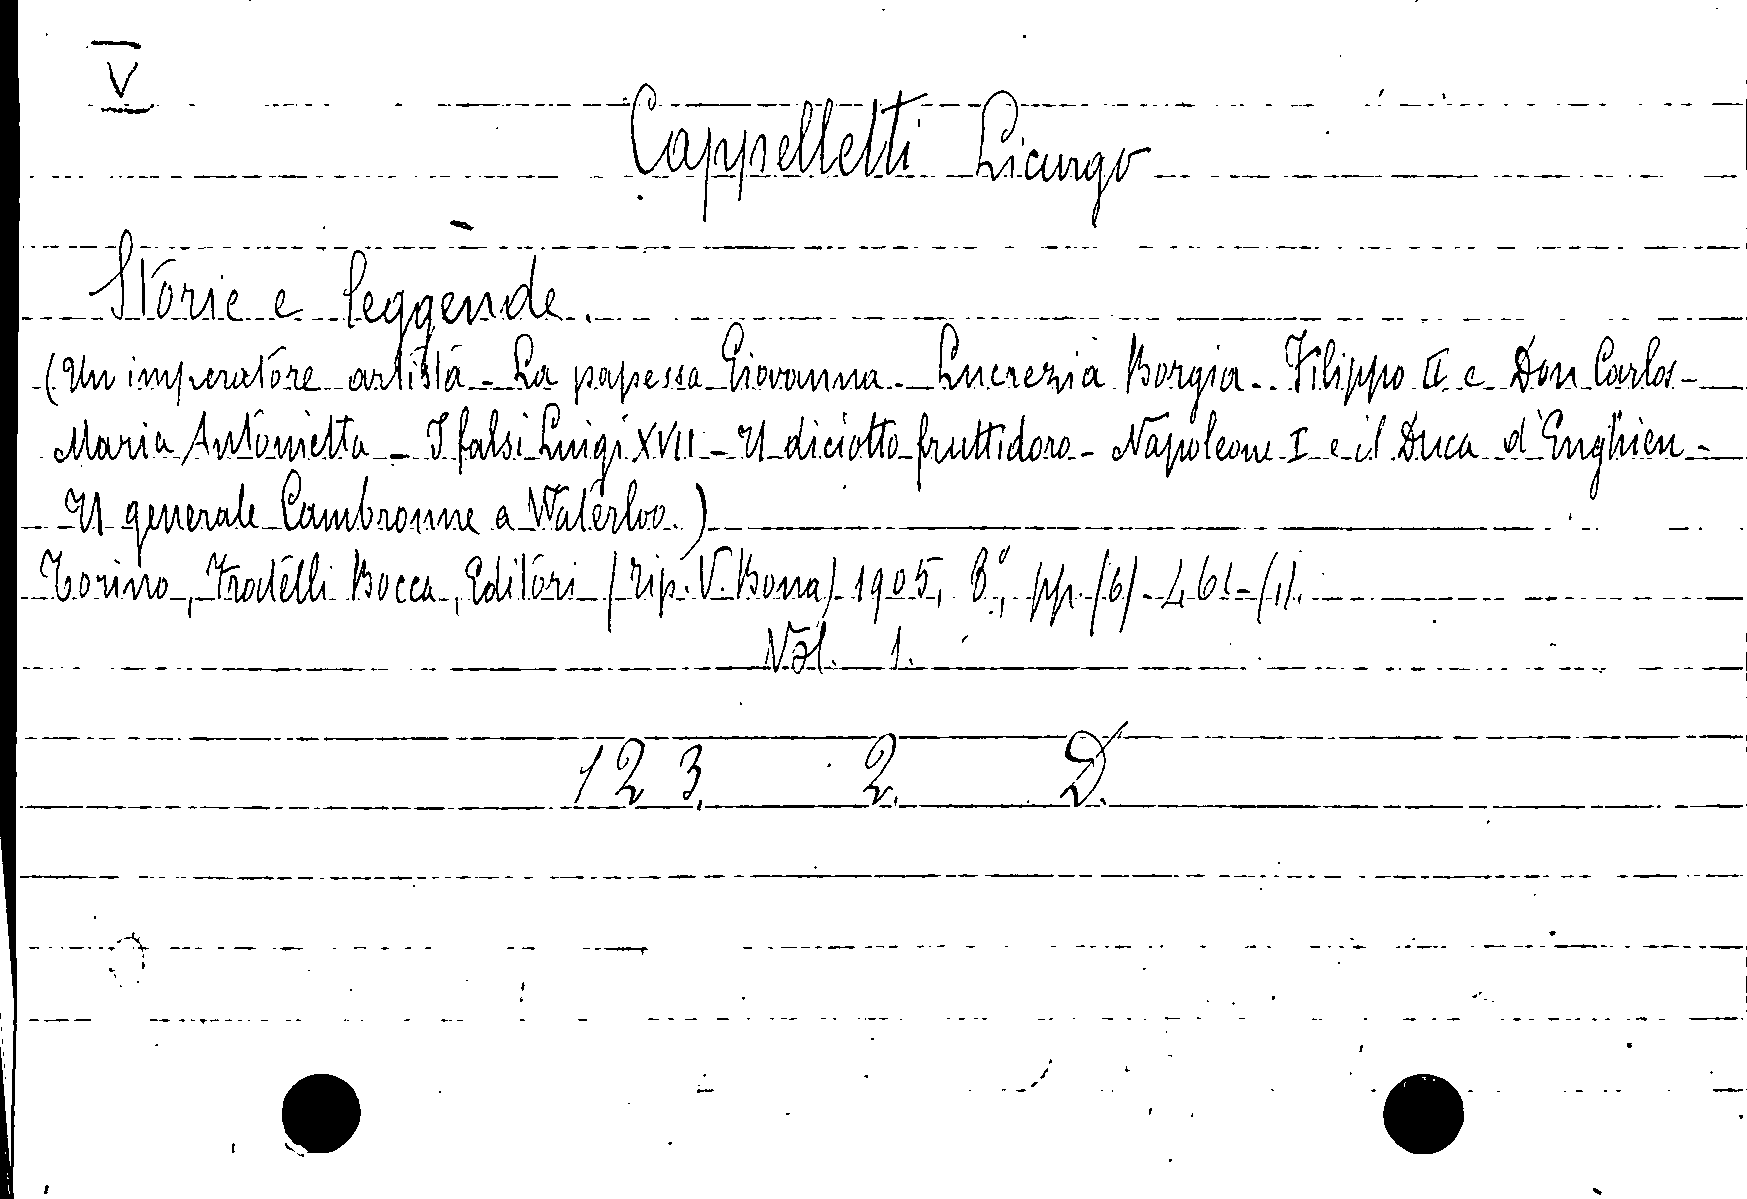 V
Cappelletti Licurgo
Storie e leggende.
(Un imperatore artista - La papessa Giovanna - Lucrezia Borgia - Filippo II e Don Carlos -
Maria Antonietta - I falsi Luigi XVII - Il diciotto fruttidoro - Napoleone I e il Duca d'Enghien -
Il generale Cambronne a Waterloo.)
Torino, Fratelli Bocca, Editori (Tip. V. Bona) 1905, 8°, pp. (6) - 461 - (1).
Vol. 1.
123. 2. D.